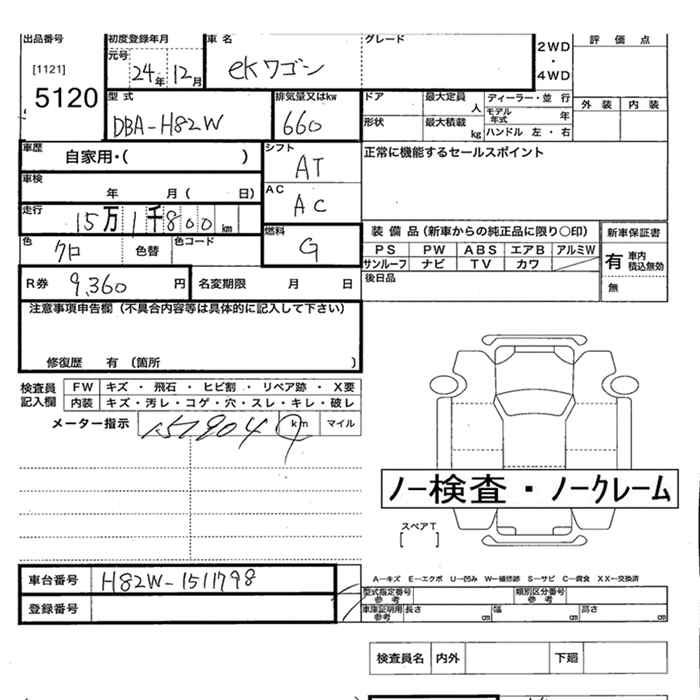 出品番号 初度登録年月 車名 グレード 2WD・4WD 評価点
[1121] 元号 24年 12月 ekワゴン
5120
型式 排気量又はkw ドア 最大定員 人 ディーラー・並行 外装 内装
DBA-H82W 660 形状 最大積載 kg モデル年式 年
ハンドル 左・右
車歴 自家用・( ) シフト AT 正常に機能するセールスポイント
車検 年 月( 日) AC AC
走行 15万1千800km 燃料 G 装備品(新車からの純正品に限り○印) 新車保証書
色 クロ 色替 色コード PS PW ABS エアB アルミW 有 車内積込無効
サンルーフ ナビ TV カワ
R券 9,360円 名変期限 月 日 後日品 無
注意事項申告欄(不具合内容等は具体的に記入して下さい)
修復歴 有 (箇所 )
検査員記入欄 FW キズ・飛石・ヒビ割・リペア跡・X要
内装 キズ・汚レ・コゲ・穴・スレ・キレ・破レ
メーター指示 151904 km マイル
ノー検査・ノークレーム
スペアT
[ ]
車台番号 H82W-1511798 A−キズ E−エクボ U−凹み W−補修跡 S−サビ C−腐食 XX−交換済
型式指定番号参考 類別区分番号参考
登録番号 車庫証明用参考 長さ cm 幅 cm 高さ cm
検査員名 内外 下廻